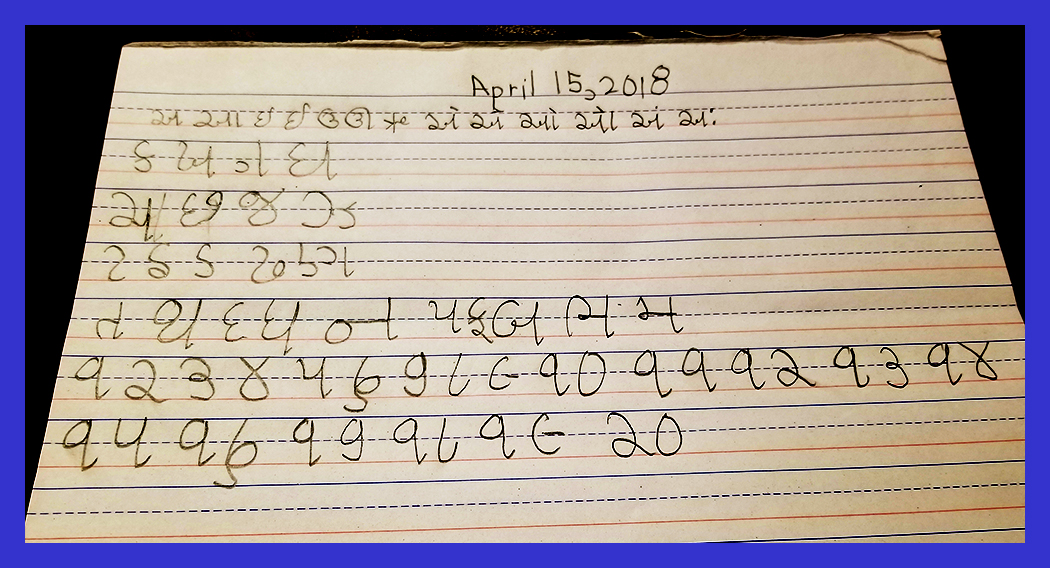 April 15,2018
અ આ ઇ ઈ ઉ ઊ ઋ એ ઐ ઓ ઔ અં અ:
ક ખ ગ ઘ
ચ છ જ ઝ
ટ ઠ ડ ઢ ણ
ત થ દ ધ ન પ ફ બ ભ મ
૧ ૨ ૩ ૪ ૫ ૬ ૭ ૮ ૯ ૧૦ ૧૧ ૧૨ ૧૩ ૧૪
૧૫ ૧૬ ૧૭ ૧૮ ૧૯ ૨૦